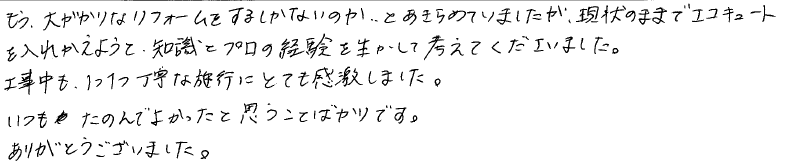 もう、大がかりなリフォームをするしかないのか‥とあきらめていましたが、現状のままでエコキュート
を入れかえようと、知識とプロの経験を生かして考えてくださいました。
工事中も、1つ1つ丁寧な施行にとても感激しました。
いつも たのんでよかったと思うことばかりです。
ありがとうございました。